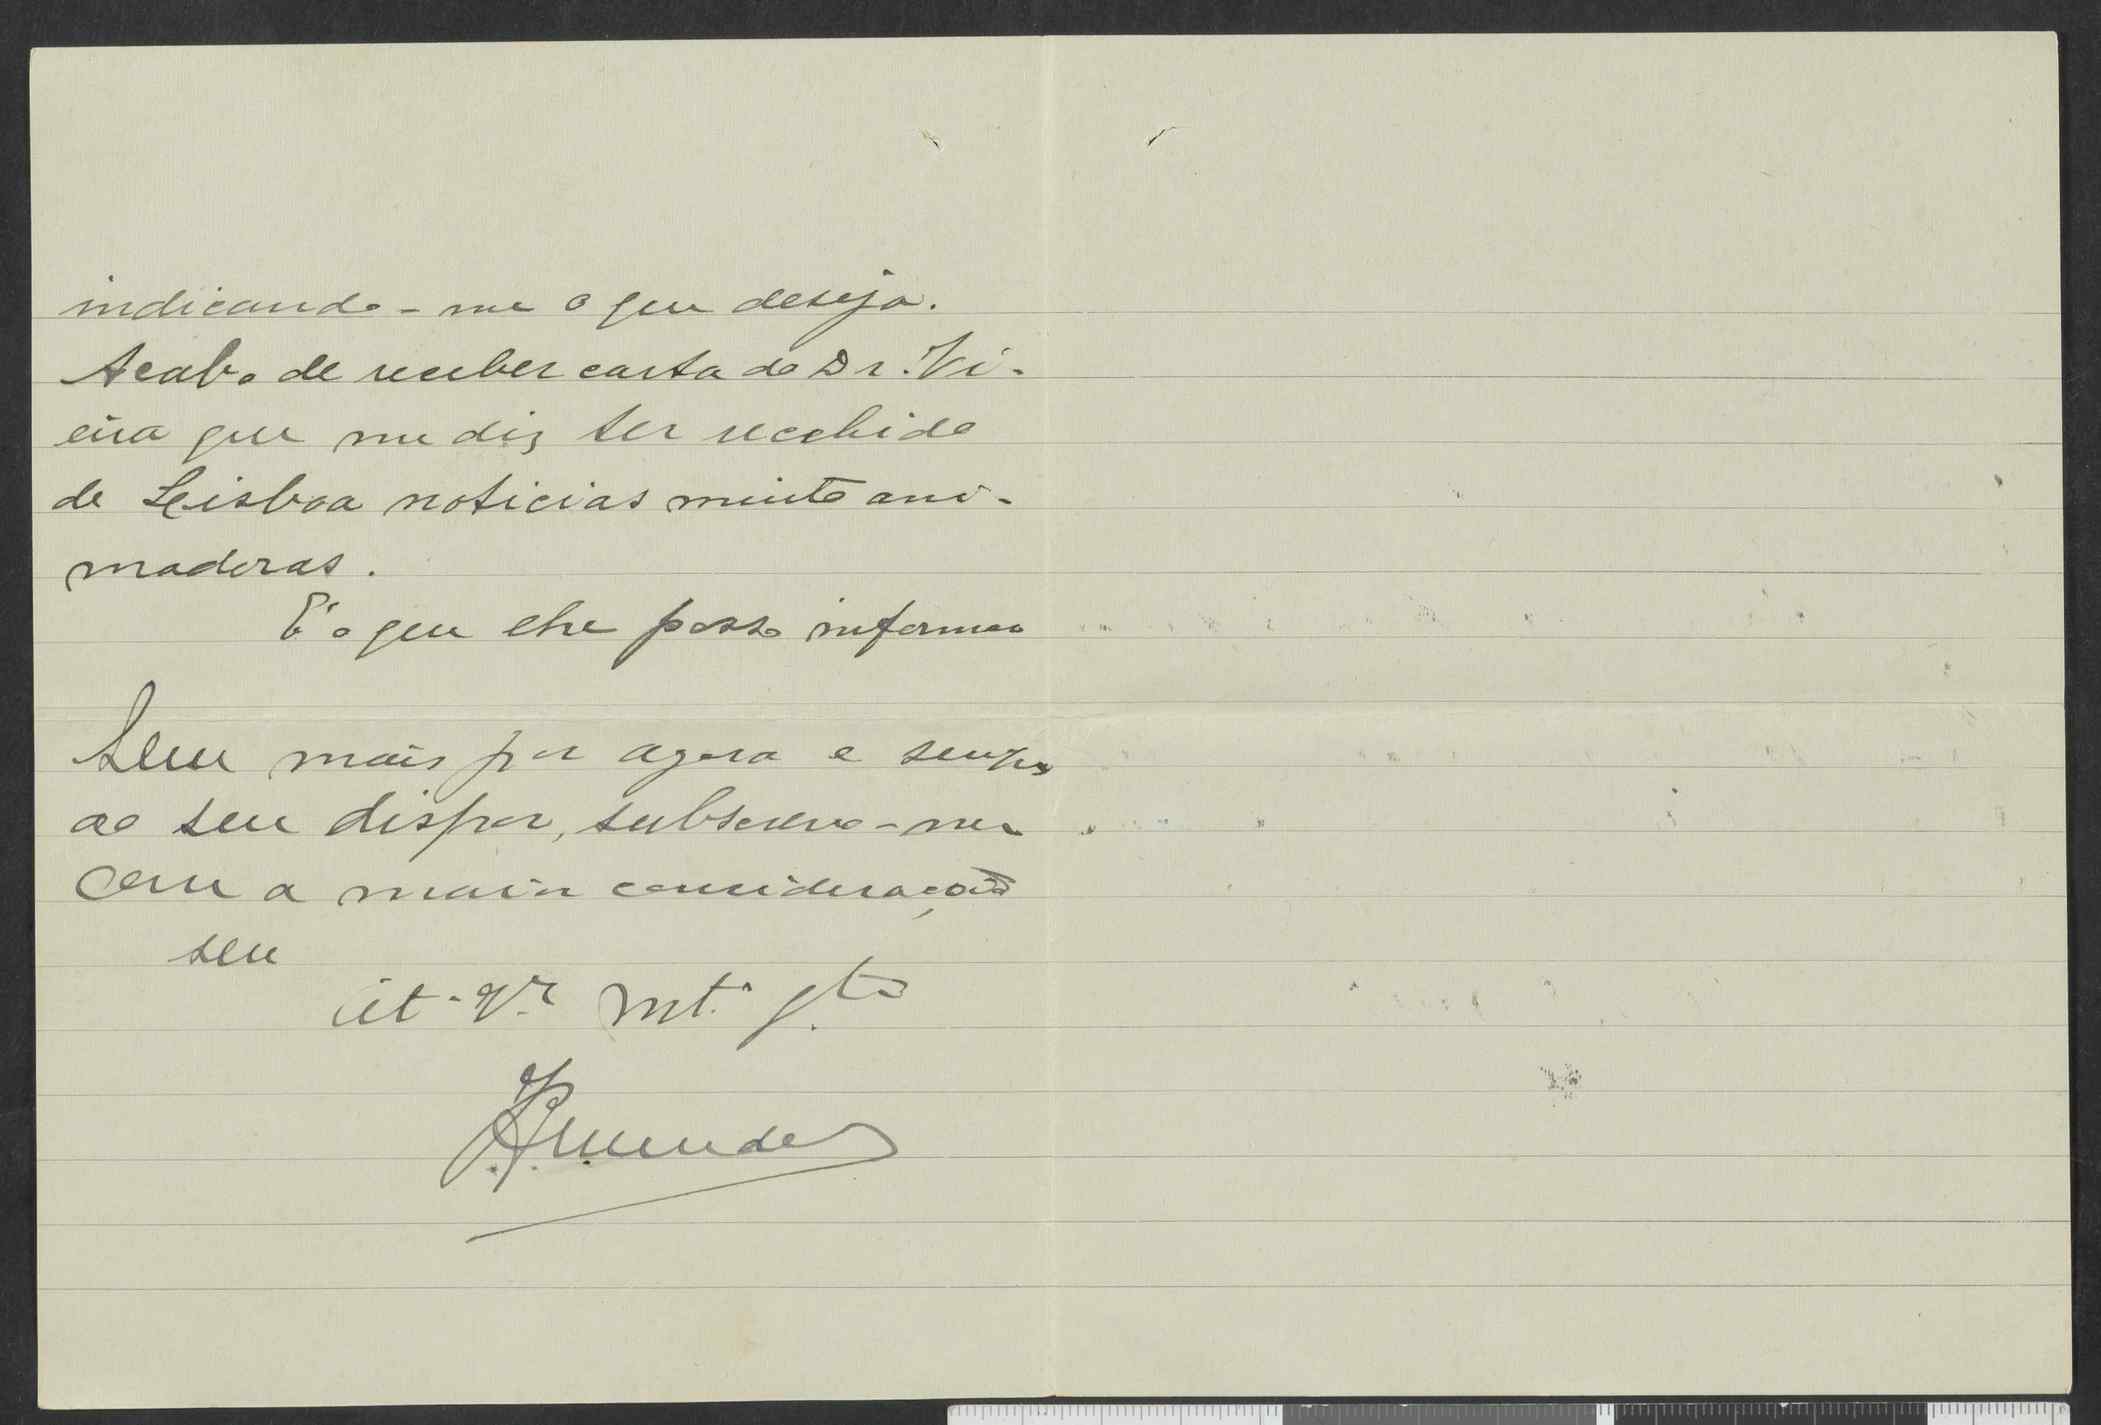 indicando-me o que deseja.
Acabo de receber carta do Dr. Vi-
eira que me diz ter recebido
de Lisboa noticias muito ani-
madoras.
É o que lhe posso informar
Sem mais por agora e sempre
ao seu dispor, subscrevo-me
com a maior consideração
seu
at. Vr. mt. gto
Mendes